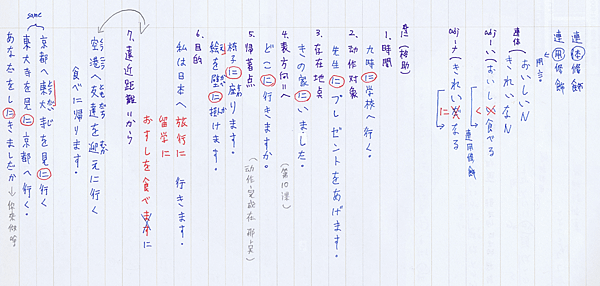 連体修飾
連用修飾
用言
おいしいN
連体
きれいなN
adj-い（おいし い 食べる
く
連用修飾
adj-ナ（きれい な なる
に
に（格助）
1. 時間
九時に学校へ行く。
2. 動作対象
先生にプレゼントをあげます。
3. 存在地点
きの家にいました。
4. 表方向=へ
どこに行きますか。
（第10課）
5. 帰着点
椅子に座ります。
絵を壁に掛けます。
6. 目的
私は日本へ 旅行に 行きます。
留学に
おすしを食べますに
7. 遠近距離=から
空港へ友達を迎えに行く
食べに帰ります。
same
京都へ東大寺を見に行く
東大寺を見に京都へ行く。
あなたをしにきましたか
→你來做啥